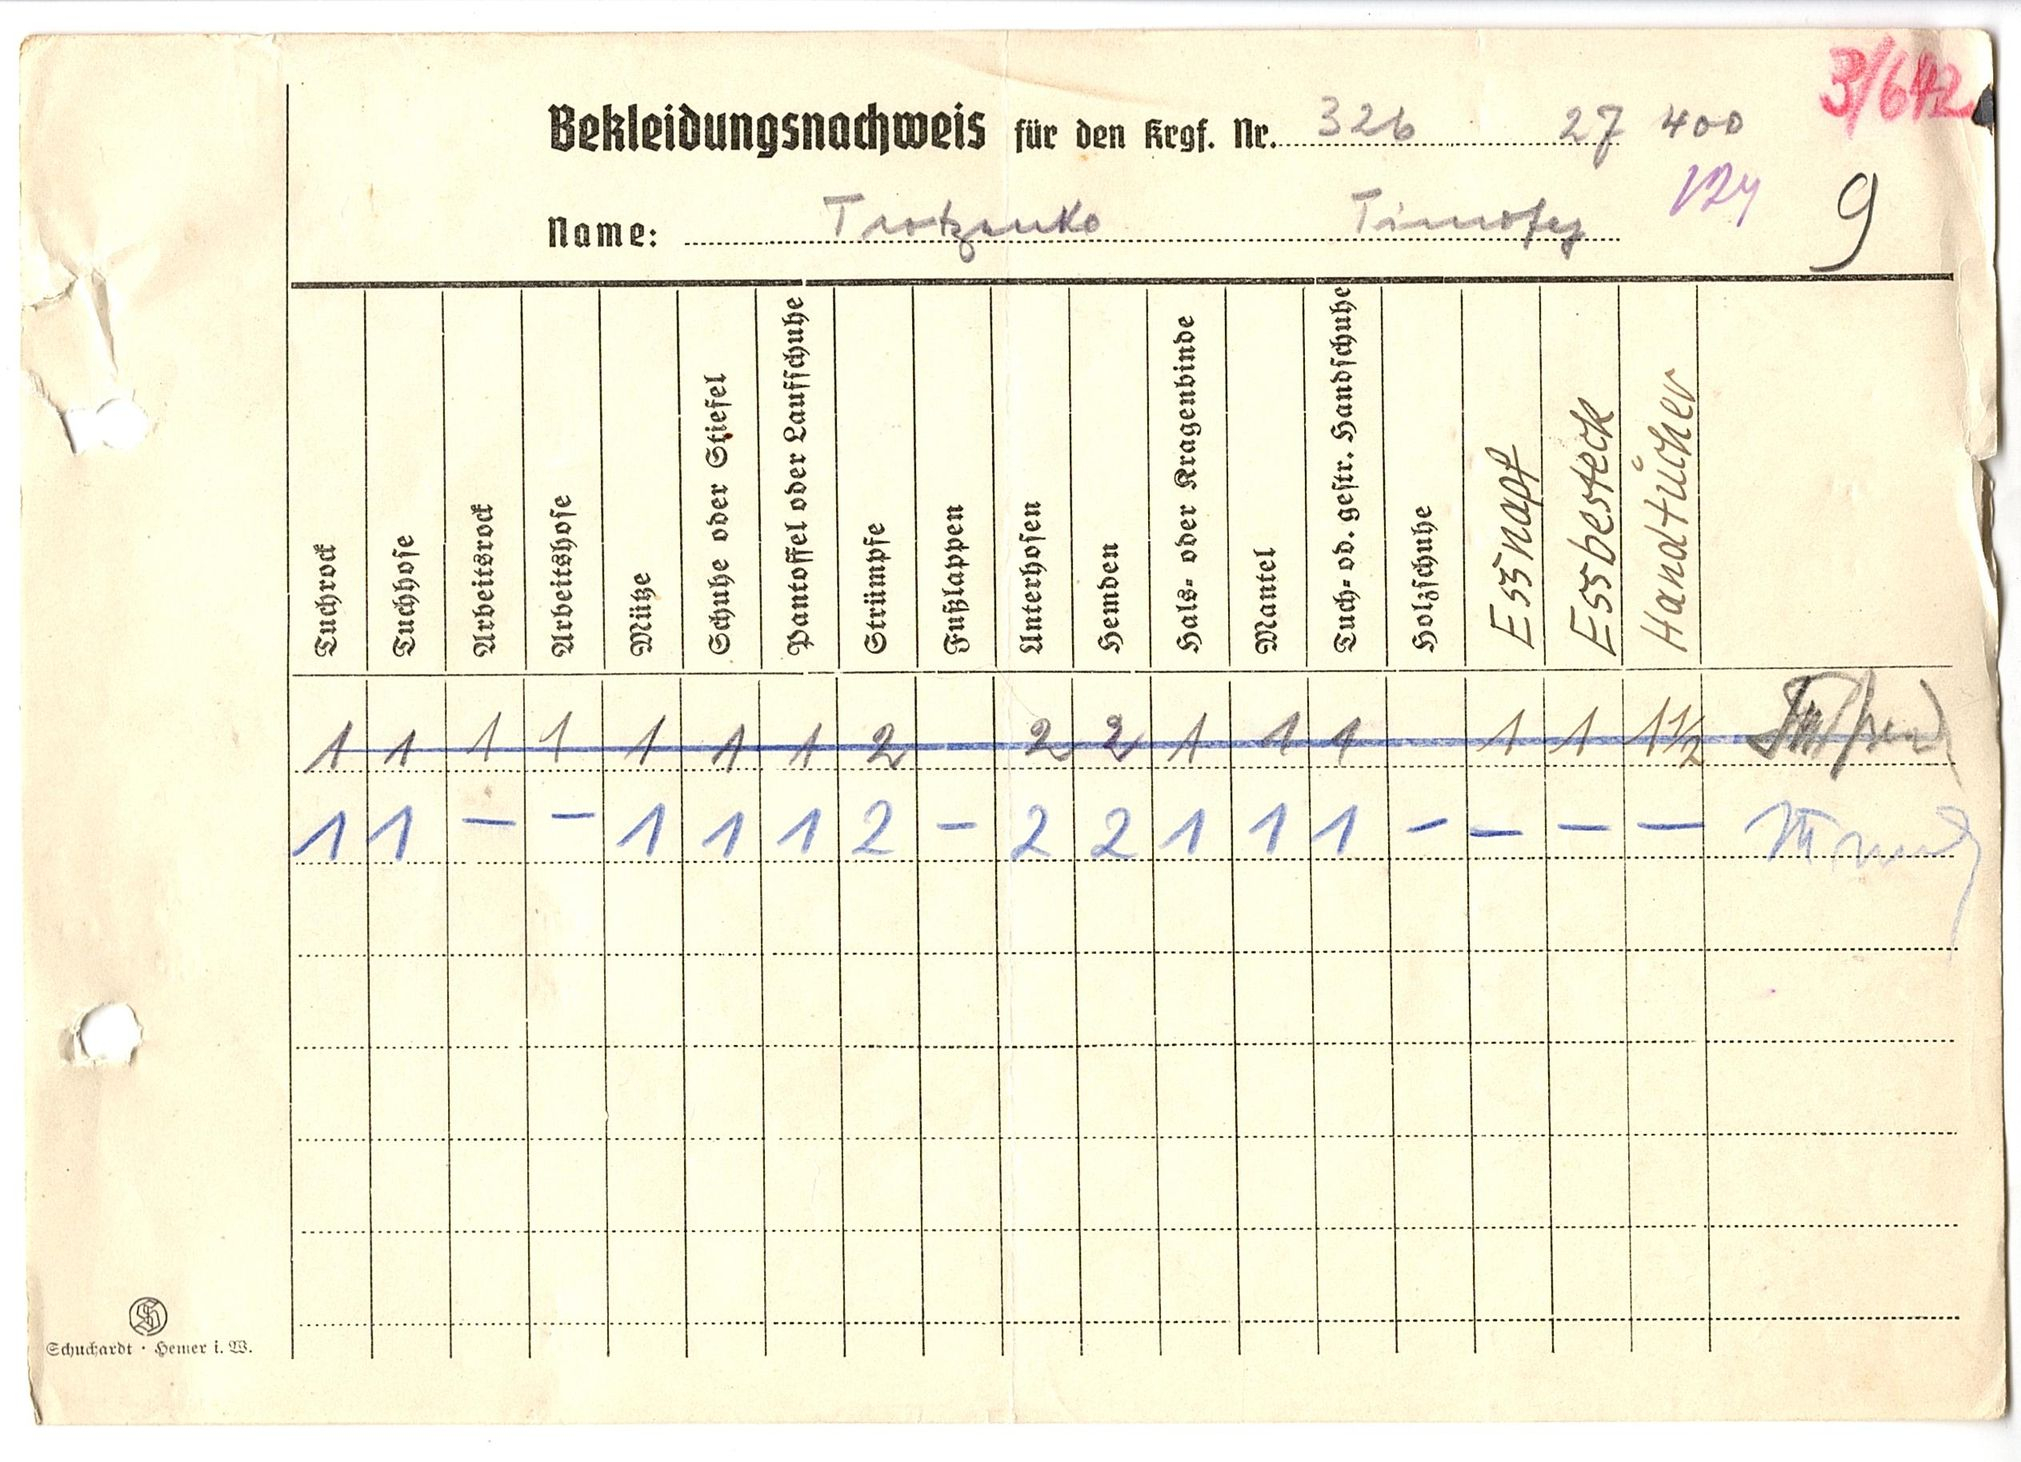 3/642
Bekleidungsnachweis für den Krgf. Nr. 326 27 400
Name: Trotzenko Timofey
9
Tuchrock
Tuchhose
Arbeitsrock
Arbeitshose
Mütze
Schuhe oder Stiefel
Pantoffel oder Laufschuhe
Strümpfe
Fußlappen
Unterhosen
Hemden
Hals- oder Kragenbinde
Mantel
Tuch- od. gestr. Handschuhe
Holzschuhe
Essnapf
Essbesteck
Handtücher
1 1 1 1 1 1 1 2 2 2 1 1 1 1 1 1 1/2
1 1 – – 1 1 1 2 – 2 2 1 1 1 – – – –
S
Schuchardt · Hemer i. W.